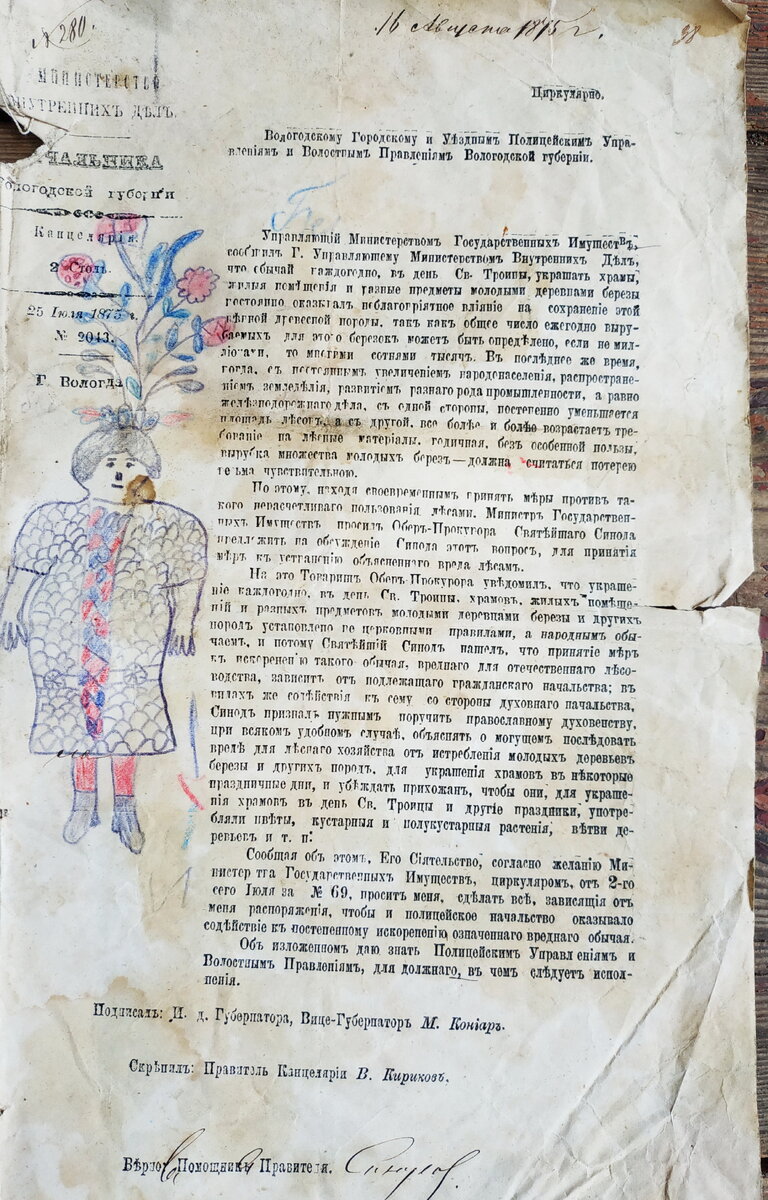 № 280.
16 Августа 1875 г.
38
МИНИСТЕРСТВО
ВНУТРЕННИХЪ ДѢЛЪ.
ЧАЛЬНИКА
Вологодской губерніи
Канцелярія.
2 Столъ.
25 Іюля 1875 г.
№ 2043.
Г. Вологда
Циркулярно.
Вологодскому Городскому и Уѣзднымъ Полицейскимъ Упра-
вленіямъ и Волостнымъ Правленіямъ Вологодской губерніи.
Управляющій Министерствомъ Государственныхъ Имуществъ,
сообщилъ Г. Управляющему Министерствомъ Внутреннихъ Дѣлъ,
что обычай каждогодно, въ день Св. Троицы, украшать храмы,
жилыя помѣщенія и разные предметы молодыми деревцами березы
постоянно оказывалъ неблагопріятное вліяніе на сохраненіе этой
цѣнной древесной породы, такъ какъ общее число ежегодно выру-
баемыхъ для этого березокъ можетъ быть опредѣлено, если не мил-
ліонами, то многими сотнями тысячъ. Въ послѣднее же время,
когда, съ постояннымъ увеличеніемъ народонаселенія, распростране-
ніемъ земледѣлія, развитіемъ разнаго рода промышленности, а равно
желѣзнодорожнаго дѣла, съ одной стороны, постепенно уменьшается
площадь лѣсовъ, а съ другой, все болѣе и болѣе возрастаетъ тре-
бованіе на лѣсные матеріалы, годичная, безъ особенной пользы,
вырубка множества молодыхъ березъ — должна считаться потерею
весьма чувствительною.
По этому, находя своевременнымъ принять мѣры противъ та-
кого нерасчетливаго пользованія лѣсами, Министръ Государствен-
ныхъ Имуществъ просилъ Оберъ-Прокурора Святѣйшаго Синода
предложить на обсужденіе Синода этотъ вопросъ, для принятія
мѣръ къ устраненію объясненнаго вреда лѣсамъ.
На это Товарищъ Оберъ-Прокурора увѣдомилъ, что украше-
ніе каждогодно, въ день Св. Троицы, храмовъ, жилыхъ помѣще-
ній и разныхъ предметовъ молодыми деревцами березы и другихъ
породъ установлено не церковными правилами, а народнымъ обы-
чаемъ, и потому Святѣйшій Синодъ нашелъ, что принятіе мѣръ
къ искорененію такого обычая, вреднаго для отечественнаго лѣсо-
водства, зависитъ отъ подлежащаго гражданскаго начальства; въ
видахъ же содѣйствія къ сему со стороны духовнаго начальства,
Синодъ призналъ нужнымъ поручить православному духовенству,
при всякомъ удобномъ случаѣ, объяснять о могущемъ послѣдовать
вредѣ для лѣснаго хозяйства отъ истребленія молодыхъ деревьевъ
березы и другихъ породъ, для украшенія храмовъ въ нѣкоторые
праздничные дни, и убѣждать прихожанъ, чтобы они, для украше-
нія храмовъ въ день Св. Троицы и другіе праздники, употреб-
бляли цвѣты, кустарныя и полукустарныя растенія, вѣтви де-
ревьевъ и т. п.
Сообщая объ этомъ, Его Сіятельство, согласно желанію Ми-
нистерства Государственныхъ Имуществъ, циркуляромъ, отъ 2-го
сего Іюля за № 69, проситъ меня, сдѣлать всѣ, зависящія отъ
меня распоряженія, чтобы и полицейское начальство оказывало
содѣйствіе къ постепенному искорененію означеннаго вреднаго обычая.
Объ изложенномъ даю знать Полицейскимъ Управленіямъ и
Волостнымъ Правленіямъ, для должнаго, въ чемъ слѣдуетъ испол-
ненія.
Подписалъ: И. д. Губернатора, Вице-Губернаторъ М. Коніаръ.
Скрѣпилъ: Правитель Канцеляріи В. Кириковъ.
Вѣрно: Помощникъ Правителя.